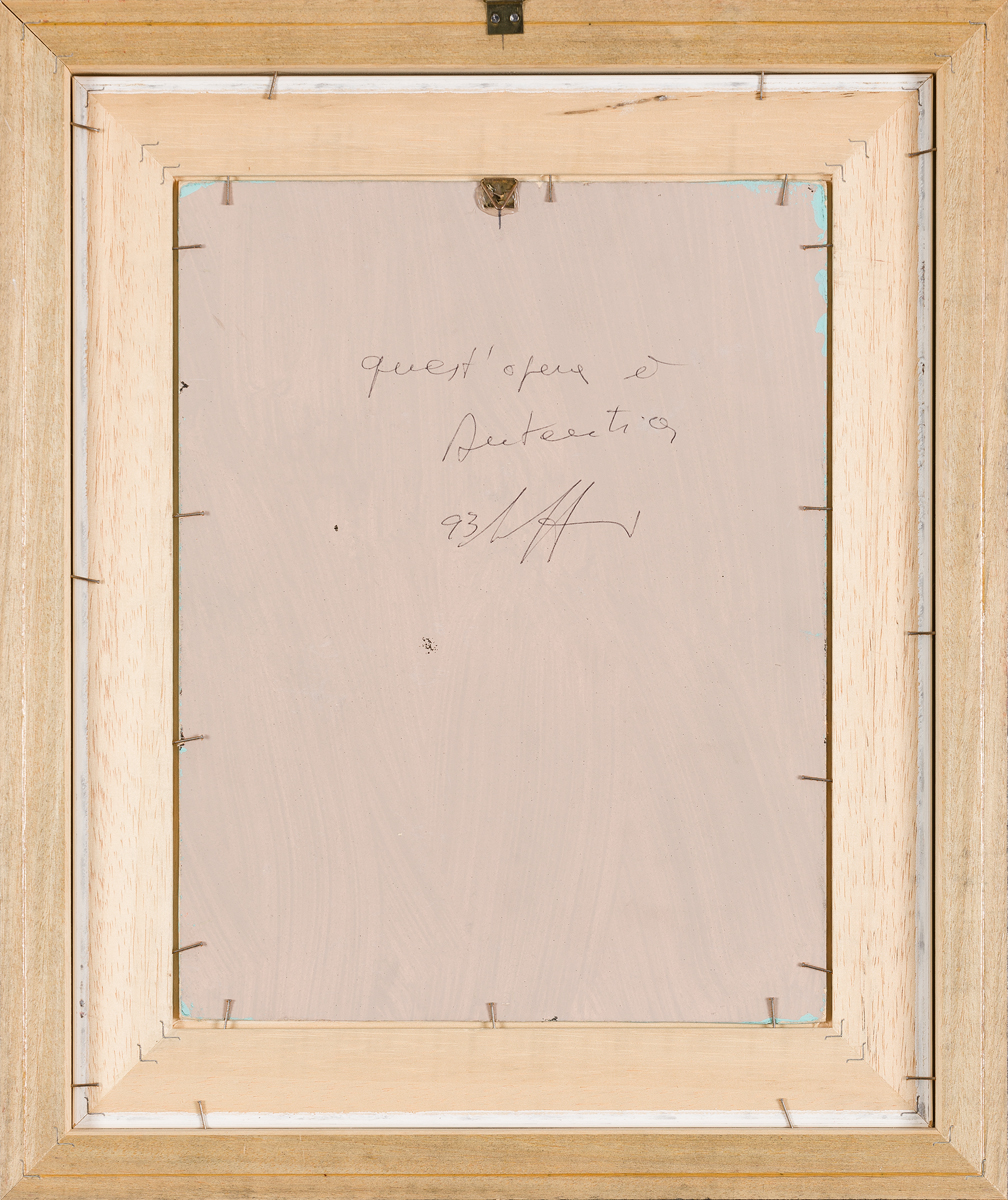 quest'opera è
Autentica
93